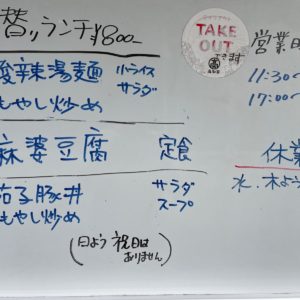 替りランチ¥800-
酸辣湯麺 小ライス
サラダ
もやし炒め
麻婆豆腐 定食
茄子豚丼 サラダ
もやし炒め スープ
(日よう 祝日は
ありません)
TAKE
OUT
できます
営業時
11:30〜
17:00〜
休業
水、木よう